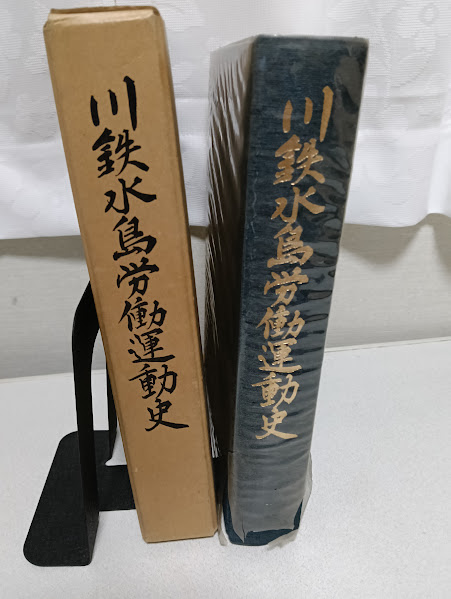 川鉄水島労働運動史
川鉄水島労働運動史